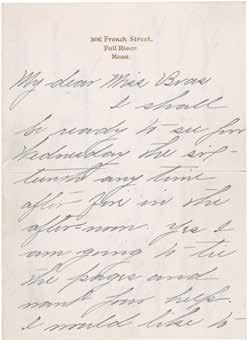 306 French Street,
Fall River
Mass.
My dear Miss
I shall
be ready to see you
Wednesday the six-
teenth any time
after five in the
afternoon. Yes I
am going to tie
the pages and
want your help.
I would like to